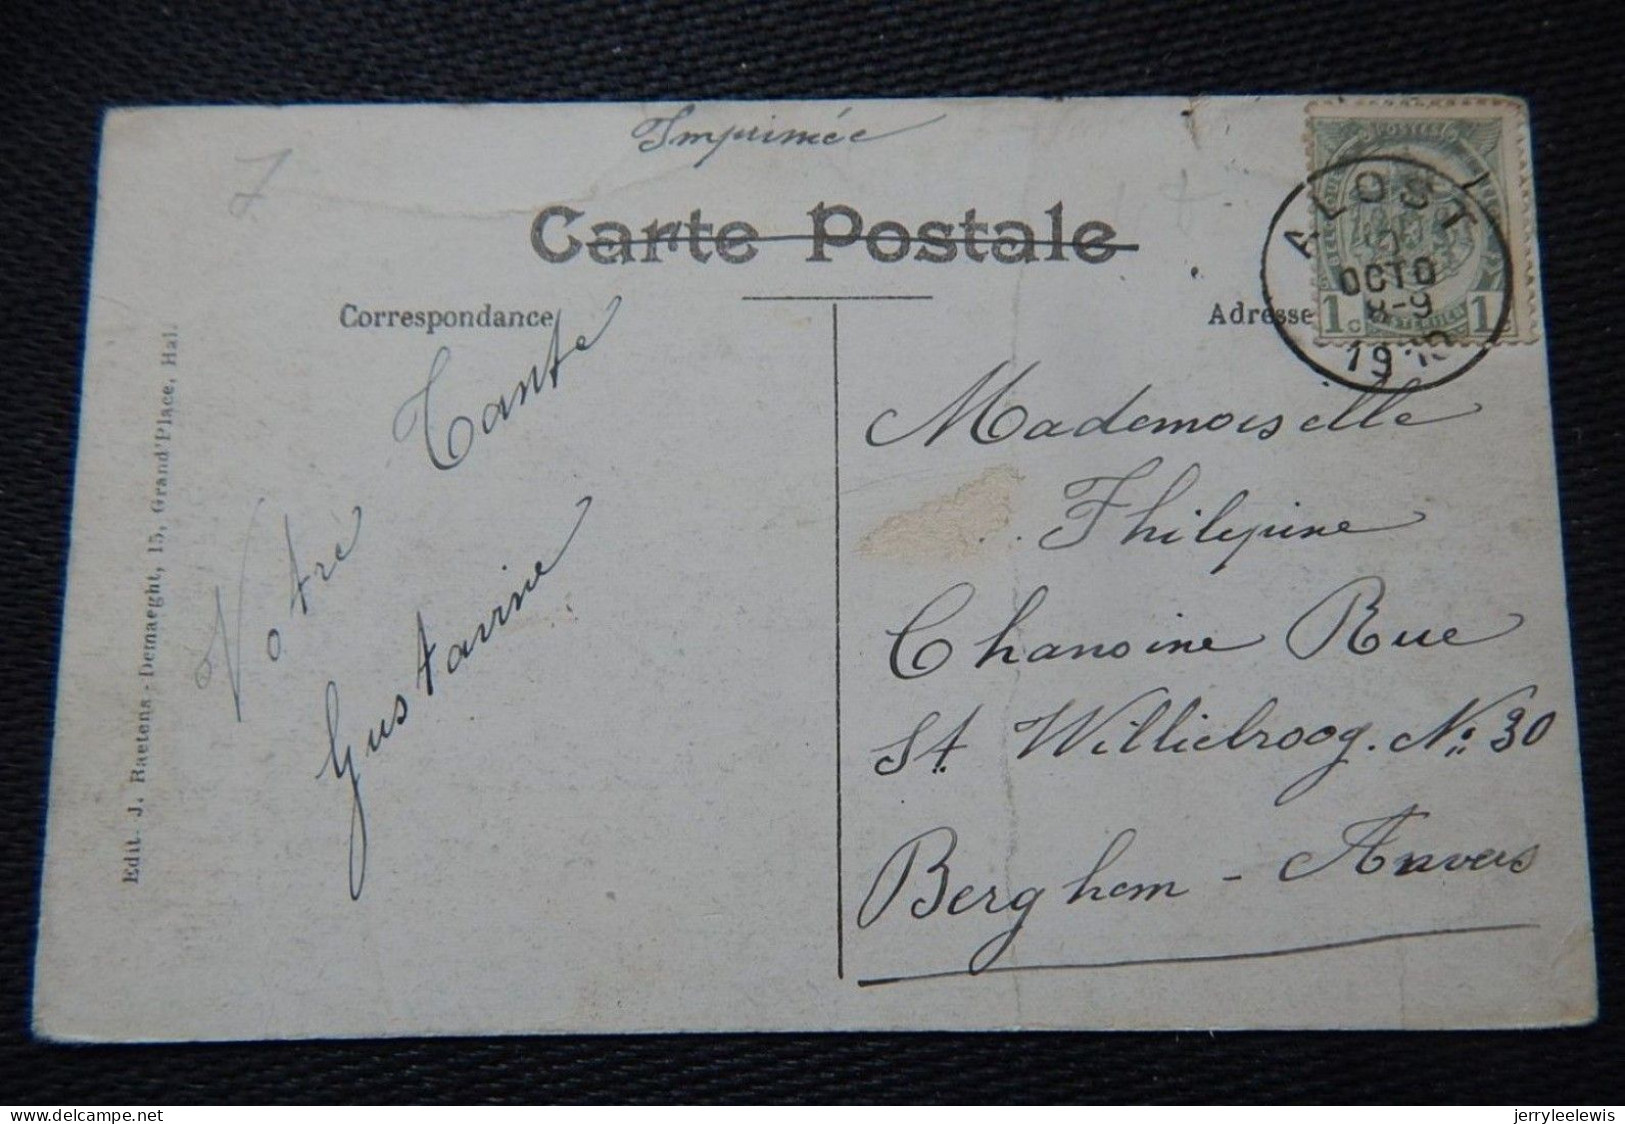 Imprimée
7
Carte Postale
Correspondance
Adresse
ALOST 1
OCTO
8-9
1910
POSTES
1c 1c
Notre Tante
Gustavine
Mademoiselle
Philipine
Chanoine Rue
St. Williebroog. No 30
Berghem - Anvers
Edit. J. Raetens-Demaeght, 15, Grand'Place, Hal.
www.delcampe.net
jerryleelewis